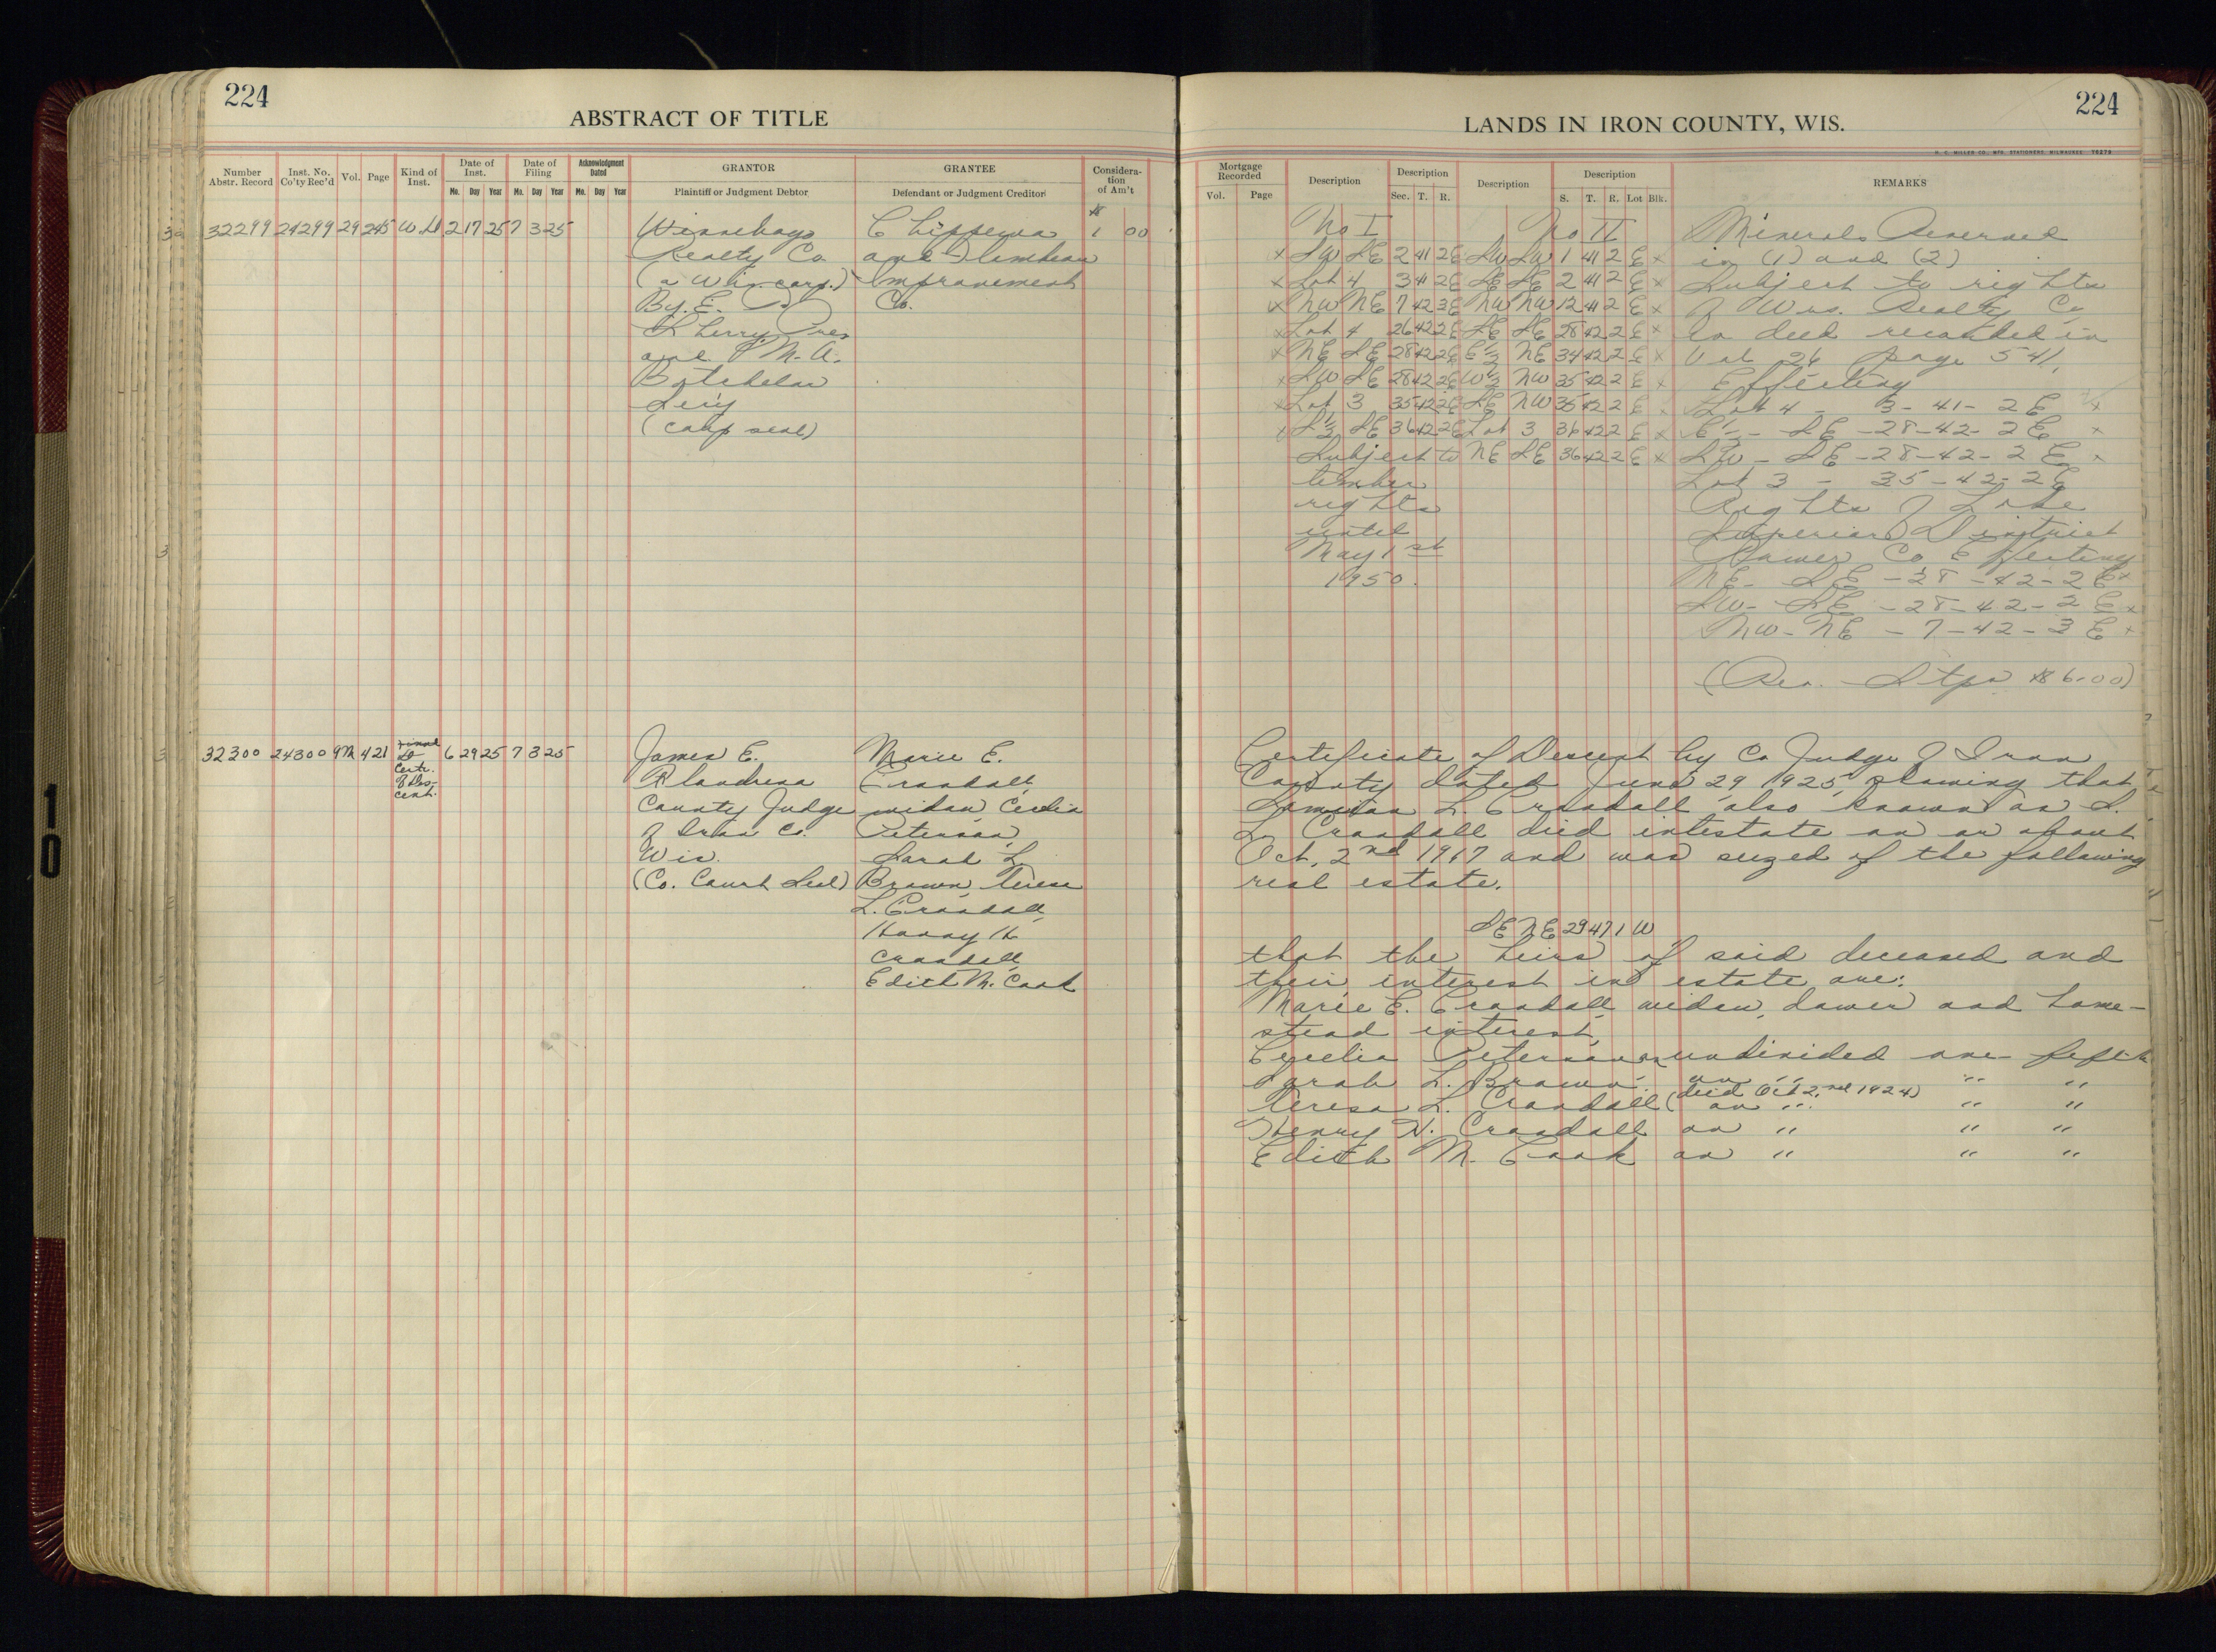 224
ABSTRACT OF TITLE
Number Abstr. Record
Inst. No. Co'ty Rec'd
Vol.
Page
Kind of Inst.
Date of Inst.
Date of Filing
Acknowledgment Dated
GRANTOR
GRANTEE
Consideration of Am't
Mo. Day Year Mo. Day Year Mo. Day Year
Plaintiff or Judgment Debtor
Defendant or Judgment Creditor
32299 24299 29 245 W.D 2 17 25 7 3 25
Winnebago
Realty Co.
(a Wis. corp.)
By. E.
Sherry Pres
and M. A.
Batchelor
Sec'y
(corp seal)
Chippewa
and Flambeau
Improvement
Co.
$ 1 00
32300 24300 9M 421
Certr.
of Des-
cent.
6 29 25 7 3 25
James E.
Flandrena
County Judge
of Iron Co.
Wis.
(Co. Court Seal)
Marie E.
Crandall,
widow, Cecilia
Peterson,
Sarah L.
Brown, Teresa
L. Crandall,
Harry H
Crandall,
Edith M. Cook
10
224
LANDS IN IRON COUNTY, WIS.
H. C. MILLER CO., MFG. STATIONERS, MILWAUKEE 76279
Mortgage Recorded
Description
Description
Description
Description
REMARKS
Vol. Page
Sec. T. R.
S. T. R. Lot Blk.
No I No II
x SW SE 2 41 2E SW SW 1 41 2 E x
x Lot 4 3 41 2E SE SE 2 41 2 E x
x NW NE 7 42 3E NW NW 12 41 2 E x
x Lot 4 26 42 2E SE SE 28 42 2 E x
x NE SE 28 42 2E E½ NE 34 42 2 E x
x SW SE 28 42 2E W½ NW 35 42 2 E x
x Lot 3 35 42 2E SE NW 35 42 2 E x
x S½ SE 36 42 2E Lot 3 36 42 2 E x
Subject to NE SE 36 42 2 E x
timber
rights
until
May 1st
1950.
Minerals Reserved
in (1) and (2)
Subject to rights
of Wis. Realty Co
in deed recorded in
Vol 26 page 541,
Effecting
Lot 4 - 3-41-2E x
SE - 28-42-2E x
SW - SE - 28-42-2E x
Lot 3 - 35-42-2E
Rights of Lake
Superior District
Power Co Effecting
NE - SE - 28-42-2E x
SW - SE - 28-42-2E x
NW - NE - 7-42-3E x
(Rev. Stps $6.00)
Certificate of Descent by Co Judge of Iron
County dated June 29 1925, showing that
L. Crandall also known as L.
L. Crandall died intestate on or about
Oct. 2nd 1917 and was seized of the following
real estate.
SE NE 29 47 1 W
that the heirs of said deceased and
their interest in estate are:
Marie E. Crandall, widow, dower and home-
stead interest,
Cecelia Peterson an undivided one-fifth
Sarah L. Brown an " " "
Teresa L. Crandall (died Oct 2nd 1924) an " " "
Henry H. Crandall an " " "
Edith M. Cook an " " "